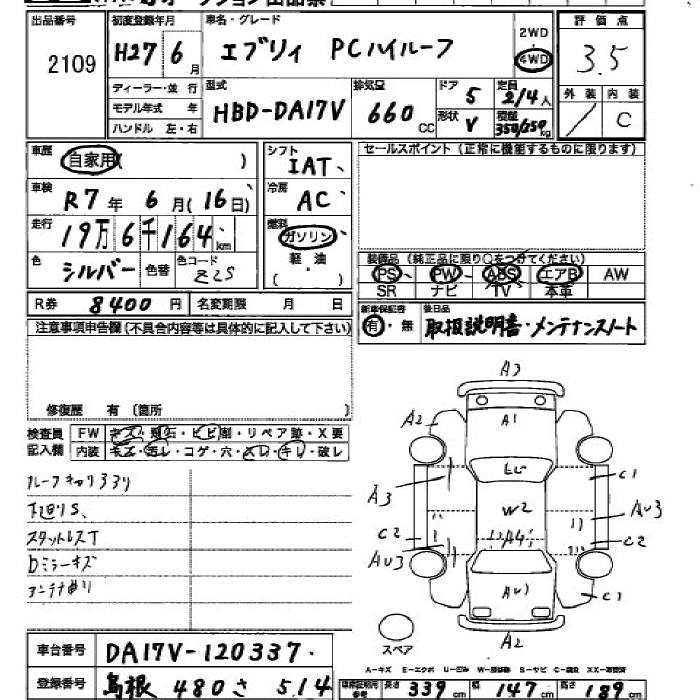 出品番号 初度登録年月 車名・グレード 評価点
2109 H27 6月 エブリィ PCハイルーフ 2WD 4WD 3.5
ディーラー・並行 型式 排気量 ドア 定員 外装 内装
モデル年式 年 HBD-DA17V 660cc 5 2/4人 / C
ハンドル 左・右 形状 V 積載 350/250kg
車歴 自家用( ) シフト IAT セールスポイント(正常に機能するものに限ります)
車検 R7年 6月(16日) 冷房 AC
走行 19万6千164km 燃料 ガソリン
軽・油
( )
色 シルバー 色替 色コード Z2S
装備品(純正品に限り○をつけてください)
PS PW ABS エアB AW
SR ナビ TV 本革
R券 8400円 名変期限 月 日
新車保証書 有・無 後日品 取扱説明書・メンテナンスノート
注意事項申告欄(不具合内容等は具体的に記入して下さい)
修復歴 有(箇所 )
検査員記入欄 FW キズ・飛石・ヒビ割・リペア跡・X要
内装 キズ・汚レ・コゲ・穴・スレ・キレ・破レ
ルーフキャリ
下廻りS、
スタットレスT
Dミラーキズ
アンテナ
A3
A2 A1
ヒビ
A3 C1
W2 AU3
C2 A4 C2
AU3
AU1 C1
A2
スペア
A-キズ E-エクボ U-凹み W-補修跡 S-サビ C-腐食 XX-交換済
車台番号 DA17V-120337
登録番号 島根 480 さ 514
車庫証明用参考 長さ 339cm 幅 147cm 高さ 189cm